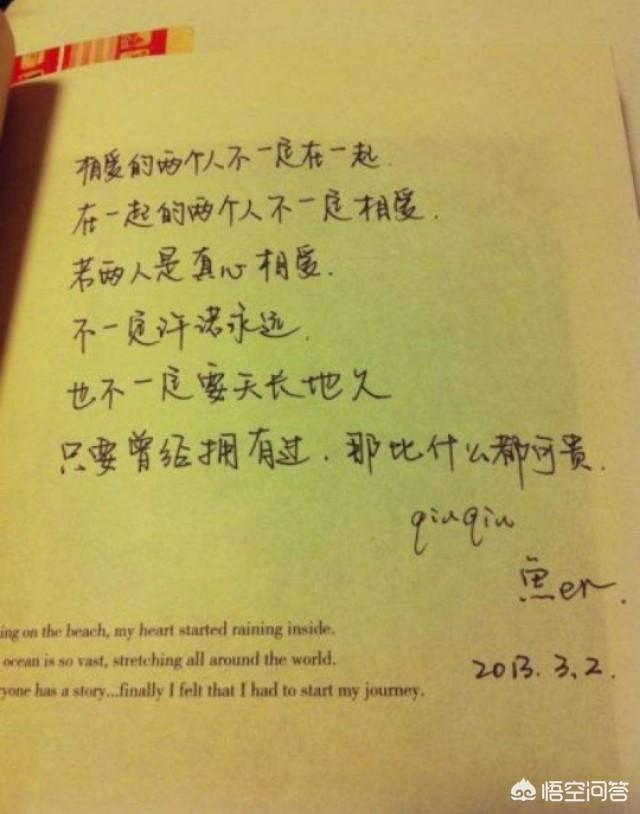 相爱的两个人不一定在一起.
在一起的两个人不一定相爱.
若两人是真心相爱.
不一定许诺永远.
也不一定要天长地久
只要曾经拥有过.那比什么都可贵.
qiuqiu
鱼er.
ing on the beach, my heart started raining inside.
ocean is so vast, stretching all around the world.
yone has a story...finally I felt that I had to start my journey.
2013.3.2.
悟空问答